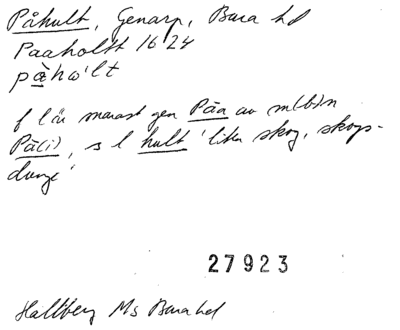 Påhult, Genarp, Bara hd
Paaholtt 1624
på̀hω'lt
f l är snarast gen Påa av mlbin
På(i), s l hult 'liten skog, skogs-
dunge'
27923
Hallberg Ms Bara hd